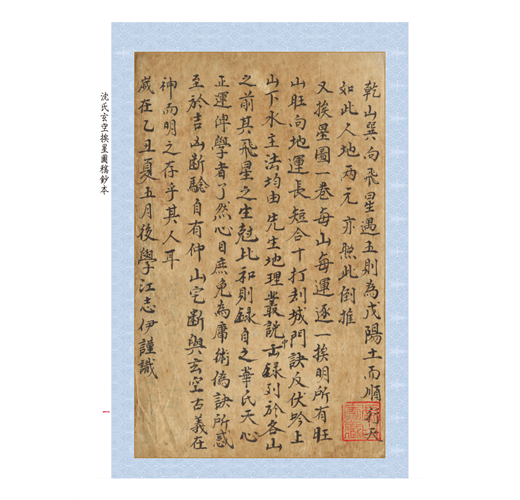 乾山巽向飛星遇五則為戊陽土而順行天
如此人地兩元亦照此倒推
又挨星圖一卷每山每運逐一挨明所有旺
山旺向地運長短合十打刦城門訣反伏吟上
山下水主法均由先生地理叢說中錄列於各山
之前其飛星之生尅比和則錄自之華氏天心
正運俾學者了然心目庶免為庸術偽訣所惑
至於吉山斷驗自有仲山宅斷與玄空古義在
神而明之存乎其人耳
歲在乙丑夏五月後學江志伊謹識
沈氏玄空挨星圖稿鈔本
一